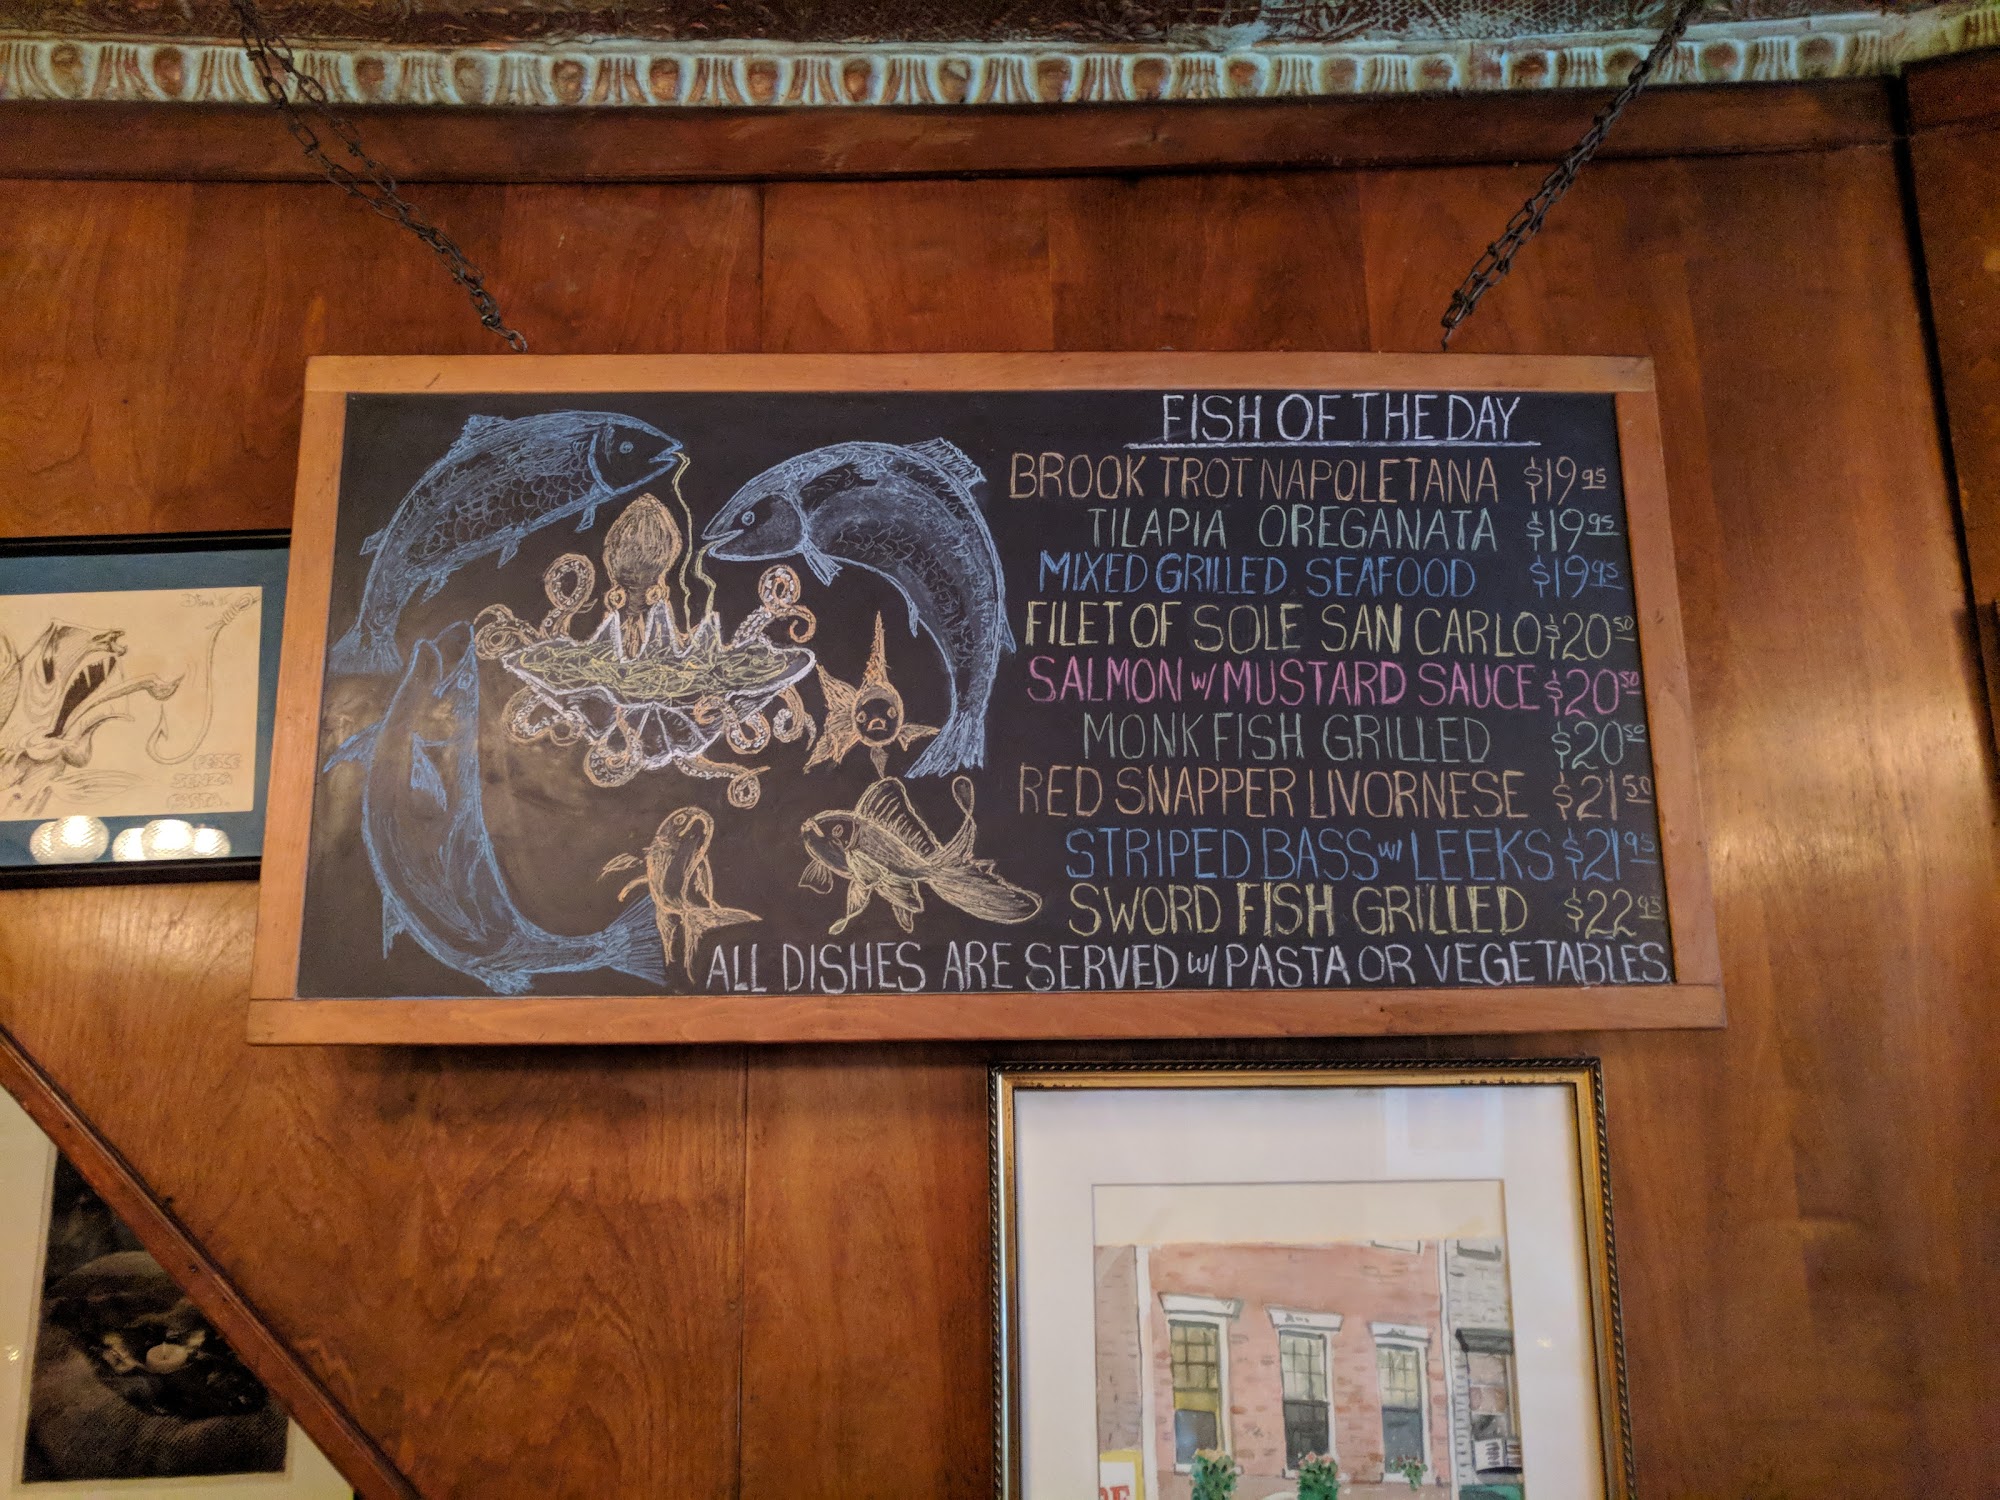 FISH OF THE DAY
BROOK TROT NAPOLETANA $19 95
TILAPIA OREGANATA $19 95
MIXED GRILLED SEAFOOD $19 95
FILET OF SOLE SAN CARLO $20 50
SALMON W/ MUSTARD SAUCE $20 50
MONK FISH GRILLED $20 50
RED SNAPPER LIVORNESE $21 50
STRIPED BASS W/ LEEKS $21 95
SWORD FISH GRILLED $22 95
ALL DISHES ARE SERVED W/ PASTA OR VEGETABLES.
PESCE
SENZA
PASTA.